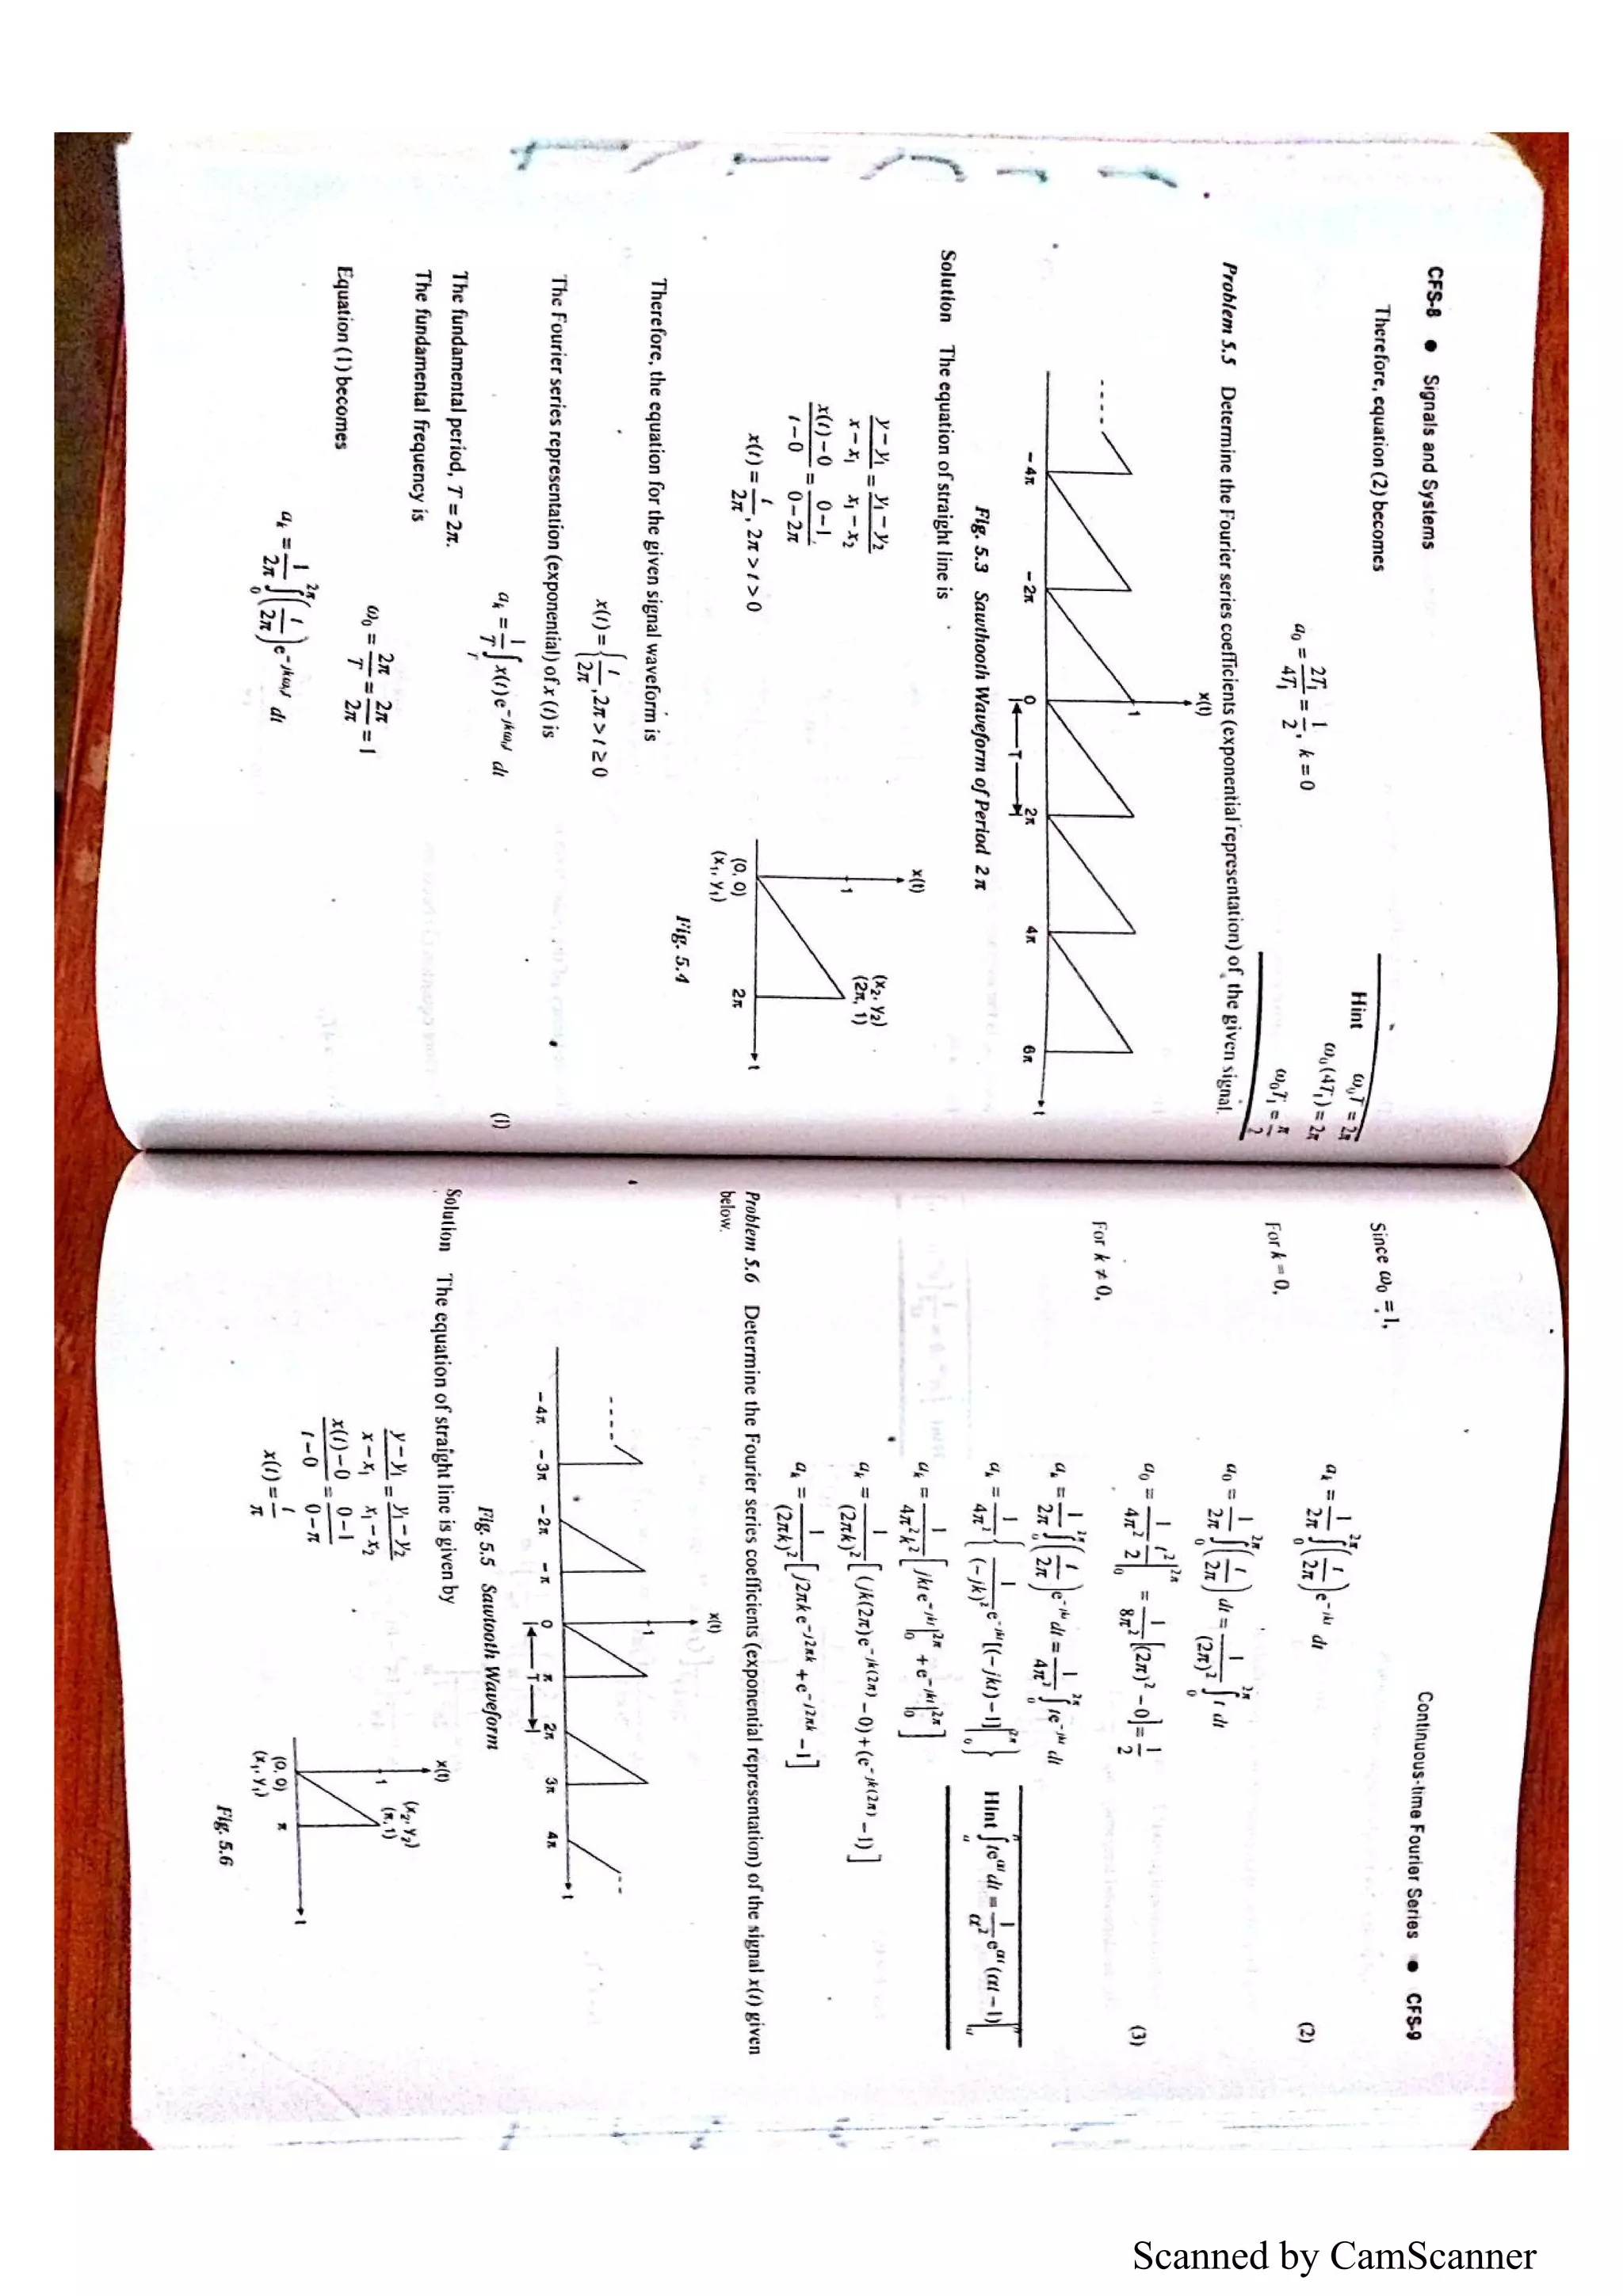 CFS-8 ● Signals and Systems
Therefore, equation (2) becomes
a₀ = 2T₁/4T₁ = 1/2, k = 0
Hint ω₀T = 2π
ω₀(4T₁) = 2π
ω₀T₁ = π/2
Problem 5.5 Determine the Fourier series coefficients (exponential representation) of the given signal.
x(t)
1
-4π -2π 0 2π 4π 6π t
T
Fig. 5.3 Sawthooth Waveform of Period 2π
Solution The equation of straight line is
(y − y₁)/(x − x₁) = (y₁ − y₂)/(x₁ − x₂)
(x(t) − 0)/(t − 0) = (0 − 1)/(0 − 2π)
x(t) = t/2π, 2π > t > 0
x(t)
1
(x₂, y₂)
(2π, 1)
(0, 0)
(x₁, y₁)
2π
t
Fig. 5.4
Therefore, the equation for the given signal waveform is
x(t) = { t/2π, 2π > t ≥ 0
The Fourier series representation (exponential) of x (t) is
aₖ = 1/T ∫_T x(t) e^(−jkω₀t) dt (1)
The fundamental period, T = 2π.
The fundamental frequency is
ω₀ = 2π/T = 2π/2π = 1
Equation (1) becomes
aₖ = 1/2π ∫₀^2π (t/2π) e^(−jkω₀t) dt
Continuous-time Fourier Series ● CFS-9
Since ω₀ = 1,
aₖ = 1/2π ∫₀^2π (t/2π) e^(−jkt) dt (2)
For k = 0,
a₀ = 1/2π ∫₀^2π (t/2π) dt = 1/(2π)² ∫₀^2π t dt
a₀ = 1/4π² t²/2 |₀^2π = 1/8π² [(2π)² − 0] = 1/2 (3)
For k ≠ 0,
aₖ = 1/2π ∫₀^2π (t/2π) e^(−jkt) dt = 1/4π² ∫₀^2π t e^(−jkt) dt
aₖ = 1/4π² { 1/(−jk)² e^(−jkt) [(−jkt) − 1] |₀^2π }
Hint ∫ t e^(αt) dt = 1/α² e^(αt) (αt − 1)|
aₖ = 1/4π²k² [ jkt e^(−jkt) |₀^2π + e^(−jkt) |₀^2π ]
aₖ = 1/(2πk)² [ (jk(2π)e^(−jk(2π)) − 0) + (e^(−jk(2π)) − 1) ]
aₖ = 1/(2πk)² [ j2πk e^(−j2πk) + e^(−j2πk) − 1 ]
Problem 5.6 Determine the Fourier series coefficients (exponential representation) of the signal x(t) given
below.
x(t)
1
-4π -3π -2π -π 0 π 2π 3π 4π t
T
Fig. 5.5 Sawtooth Waveform
Solution The equation of straight line is given by
(y − y₁)/(x − x₁) = (y₁ − y₂)/(x₁ − x₂)
(x(t) − 0)/(t − 0) = (0 − 1)/(0 − π)
x(t) = t/π
x(t)
1
(x₂, y₂)
(π, 1)
(0, 0)
(x₁, y₁)
π
t
Fig. 5.6
Scanned by CamScanner